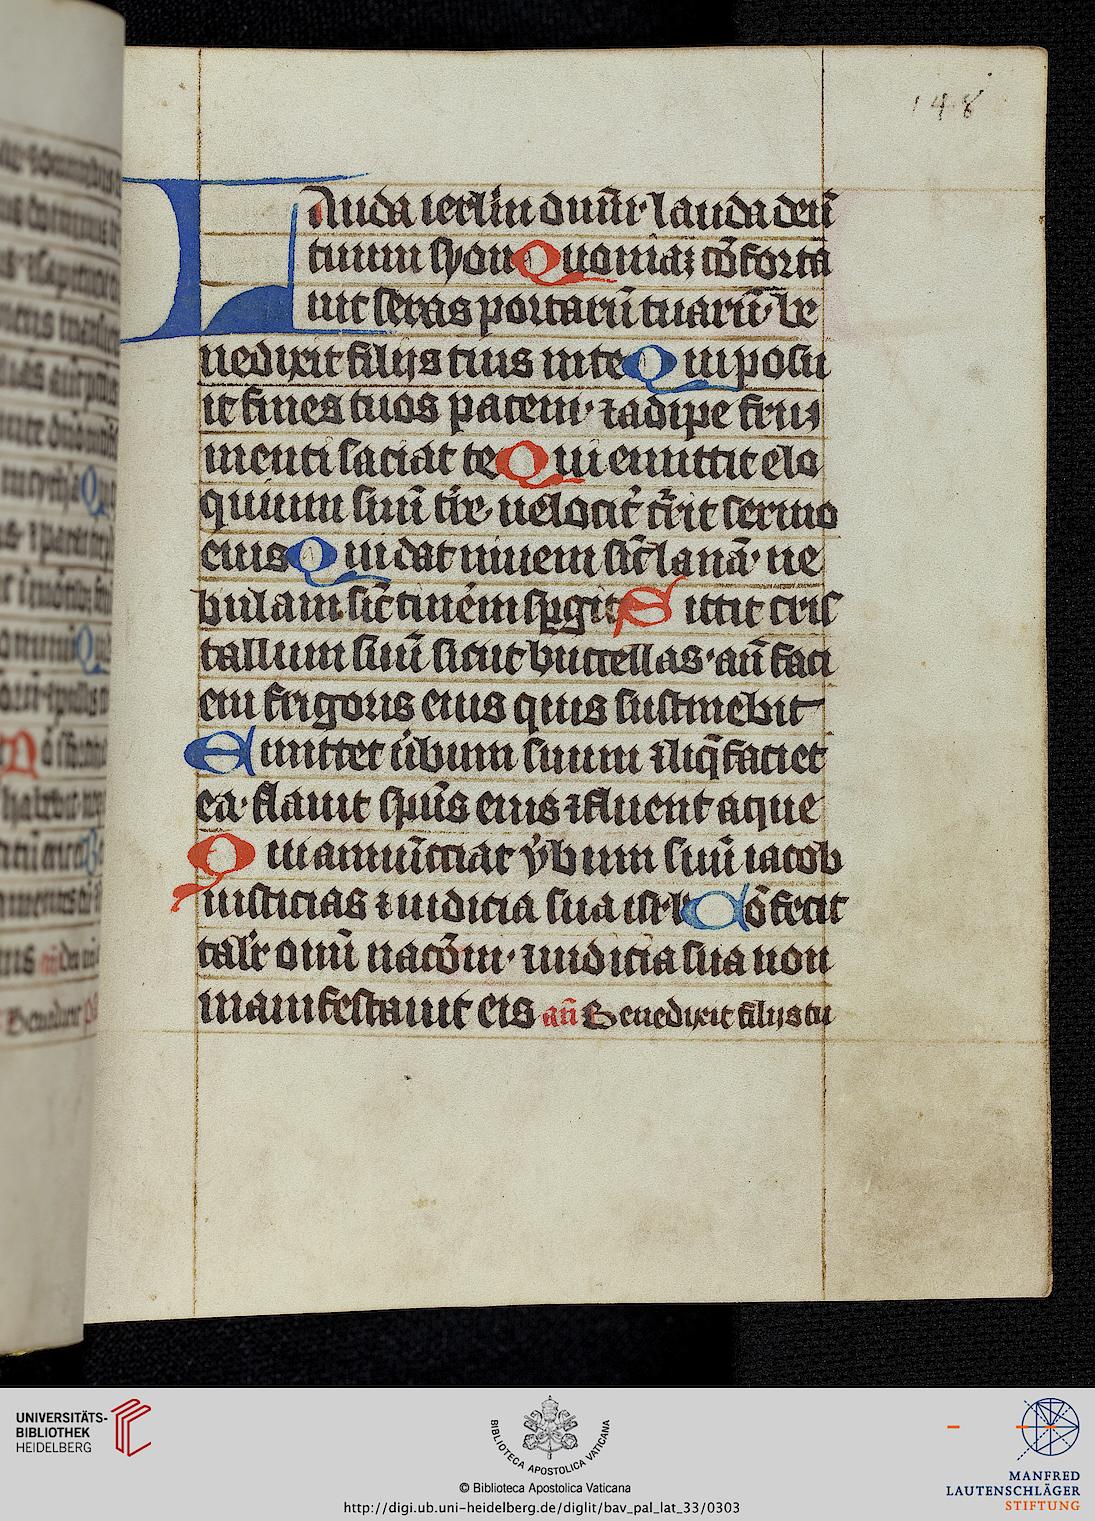 148
Lauda ierl̅m dñm· lauda deū
tuum syon Quoniaʒ cōforta
uit seras portarū tuarū· be
nedixit filijs tuis in te Qui posu
it fines tuos pacem· ⁊ adipe fru
menti saciat te Qui emittit elo
quium suū tr̅e· uelocit̉ cr̅rit sermo
eius Qui dat niuem sic̄ lanā· ne
bulam sic̄ cinerem spgit Mittit cris
tallum suū sicut buccellas· añ faci
em frigoris eius quis sustinebit
Emittet ůbum suum ⁊ liq̄faciet
ea· flauit sp̄us eius ⁊ fluent aque
Qui annūcciat v̉bum suū iacob
iusticias ⁊ iudicia sua isrl Nō fecit
talit̉ omī nacōni· ⁊ iudicia sua non
manifestauit eis añ Benedixit filijs tu
UNIVERSITÄTS-
BIBLIOTHEK
HEIDELBERG
BIBLIOTECA APOSTOLICA VATICANA
© Biblioteca Apostolica Vaticana
http://digi.ub.uni-heidelberg.de/diglit/bav_pal_lat_33/0303
MANFRED
LAUTENSCHLÄGER
STIFTUNG